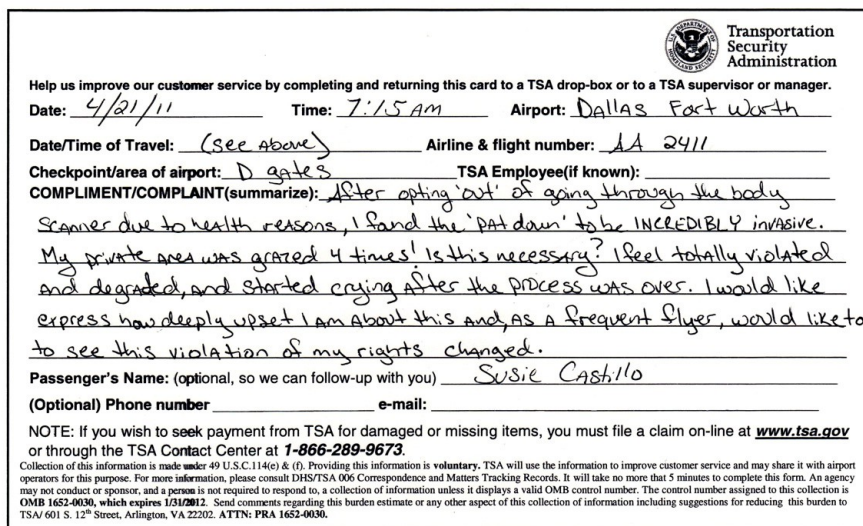 U.S. DEPARTMENT OF HOMELAND SECURITY
Transportation
Security
Administration
Help us improve our customer service by completing and returning this card to a TSA drop-box or to a TSA supervisor or manager.
Date: 4/21/11 Time: 7:15 AM Airport: Dallas Fort Worth
Date/Time of Travel: (see Above) Airline & flight number: AA 2411
Checkpoint/area of airport: D gates TSA Employee(if known):
COMPLIMENT/COMPLAINT(summarize): After opting 'out' of going through the body
scanner due to health reasons, I found the 'pat down' to be INCREDIBLY invasive.
My private area was grazed 4 times! Is this necessary? I feel totally violated
and degraded, and started crying after the process was over. I would like
express how deeply upset I am about this and, as a frequent flyer, would like to
to see this violation of my rights changed.
Passenger's Name: (optional, so we can follow-up with you) Susie Castillo
(Optional) Phone number e-mail:
NOTE: If you wish to seek payment from TSA for damaged or missing items, you must file a claim on-line at www.tsa.gov
or through the TSA Contact Center at 1-866-289-9673.
Collection of this information is made under 49 U.S.C.114(e) & (f). Providing this information is voluntary. TSA will use the information to improve customer service and may share it with airport
operators for this purpose. For more information, please consult DHS/TSA 006 Correspondence and Matters Tracking Records. It will take no more that 5 minutes to complete this form. An agency
may not conduct or sponsor, and a person is not required to respond to, a collection of information unless it displays a valid OMB control number. The control number assigned to this collection is
OMB 1652-0030, which expires 1/31/2012. Send comments regarding this burden estimate or any other aspect of this collection of information including suggestions for reducing this burden to
TSA/ 601 S. 12th Street, Arlington, VA 22202. ATTN: PRA 1652-0030.